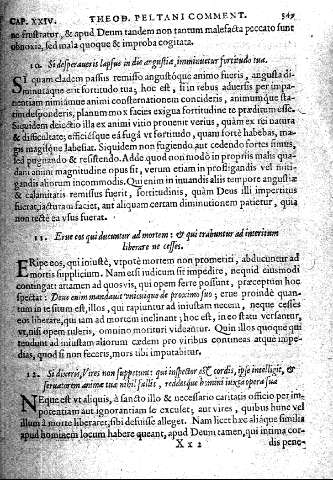 CAP. XXIV. THEOD. PELTANI COMMENT. 549
ne frustratur, & apud Deum tandem non tantum malefacta peccato sunt
obnoxia, sed mala quoque & improba cogitata.
10. Si desperaueris lapsus in die angustiæ, imminuetur fortitudo tua.
SI quam cladem passus remisso angustóque animo fueris, angusta di-
minutáque erit fortitudo tua; hoc est, si in rebus aduersis per impa-
tientiam nimiámue animi consternationem concideris, animúmque sta-
tim desponderis, planum mox facies exigua fortitudine te præditum esse.
Siquidem deiectio illa ex animi vitio prouenit verius, quàm ex rei natura
& difficultate; efficiésque eâ fugâ vt fortitudo, quam fortè habebas, ma-
gis magísque labefiat. Siquidem non fugiendo aut cedendo fortes simus,
sed pugnando & resistendo. Adde quod non modò in propriis malis qua-
dam animi magnitudine opus sit, verum etiam in profligandis vel miti-
gandis aliorum incommodis. Qui enim in iuuandis aliis tempore angustiæ
& calamitatis remissus fuerit, fortitudinis, quàm Deus illi impertitus
fuerat, iacturam faciet, aut aliquam certam diminutionem patietur, quia
non rectè ea vsus fuerat.
11. Erue eos qui ducuntur ad mortem: & qui trahuntur ad interitum
liberare ne cesses.
ERipe eos, qui iniustè, vtpote mortem non promeriti, abducuntur ad
mortis supplicium. Nam etsi iudicum sit impedire, nequid eiusmodi
contingat: attamen ad quosvis, qui opem ferre possunt, præceptum hoc
spectat: Deus enim mandauit vnicuique de proximo suo; erue proinde quan-
tum in te situm est, illos, qui rapiuntur ad iniustam necem, neque cesses
eos liberare, qui iam ad mortem inclinant; hoc est, in eo statu versantur,
vt, nisi opem tuleris, omnino morituri videantur. Quin illos quoque qui
tendunt ad iniustam aliorum cædem pro viribus contineas atque impe-
dias, quod si non feceris, mors tibi imputabitur.
12. Si dixeris, Vires non suppetunt: qui inspector est cordis, ipse intelligit, &
seruatorem animæ tuæ nihil fallit, reddétque homini iuxta opera sua
NEque est vt aliquis, à sancto illo & necessario caritatis officio per im-
potentiam aut ignorantiam se excuset; aut vires, quibus hunc vel
illum à morte liberaret, sibi defuisse alleget. Nam licet hæc aliáque similia
apud hominem locum habere queant, apud Deum tamen, qui intima cor-
Xx 2 dis pene-